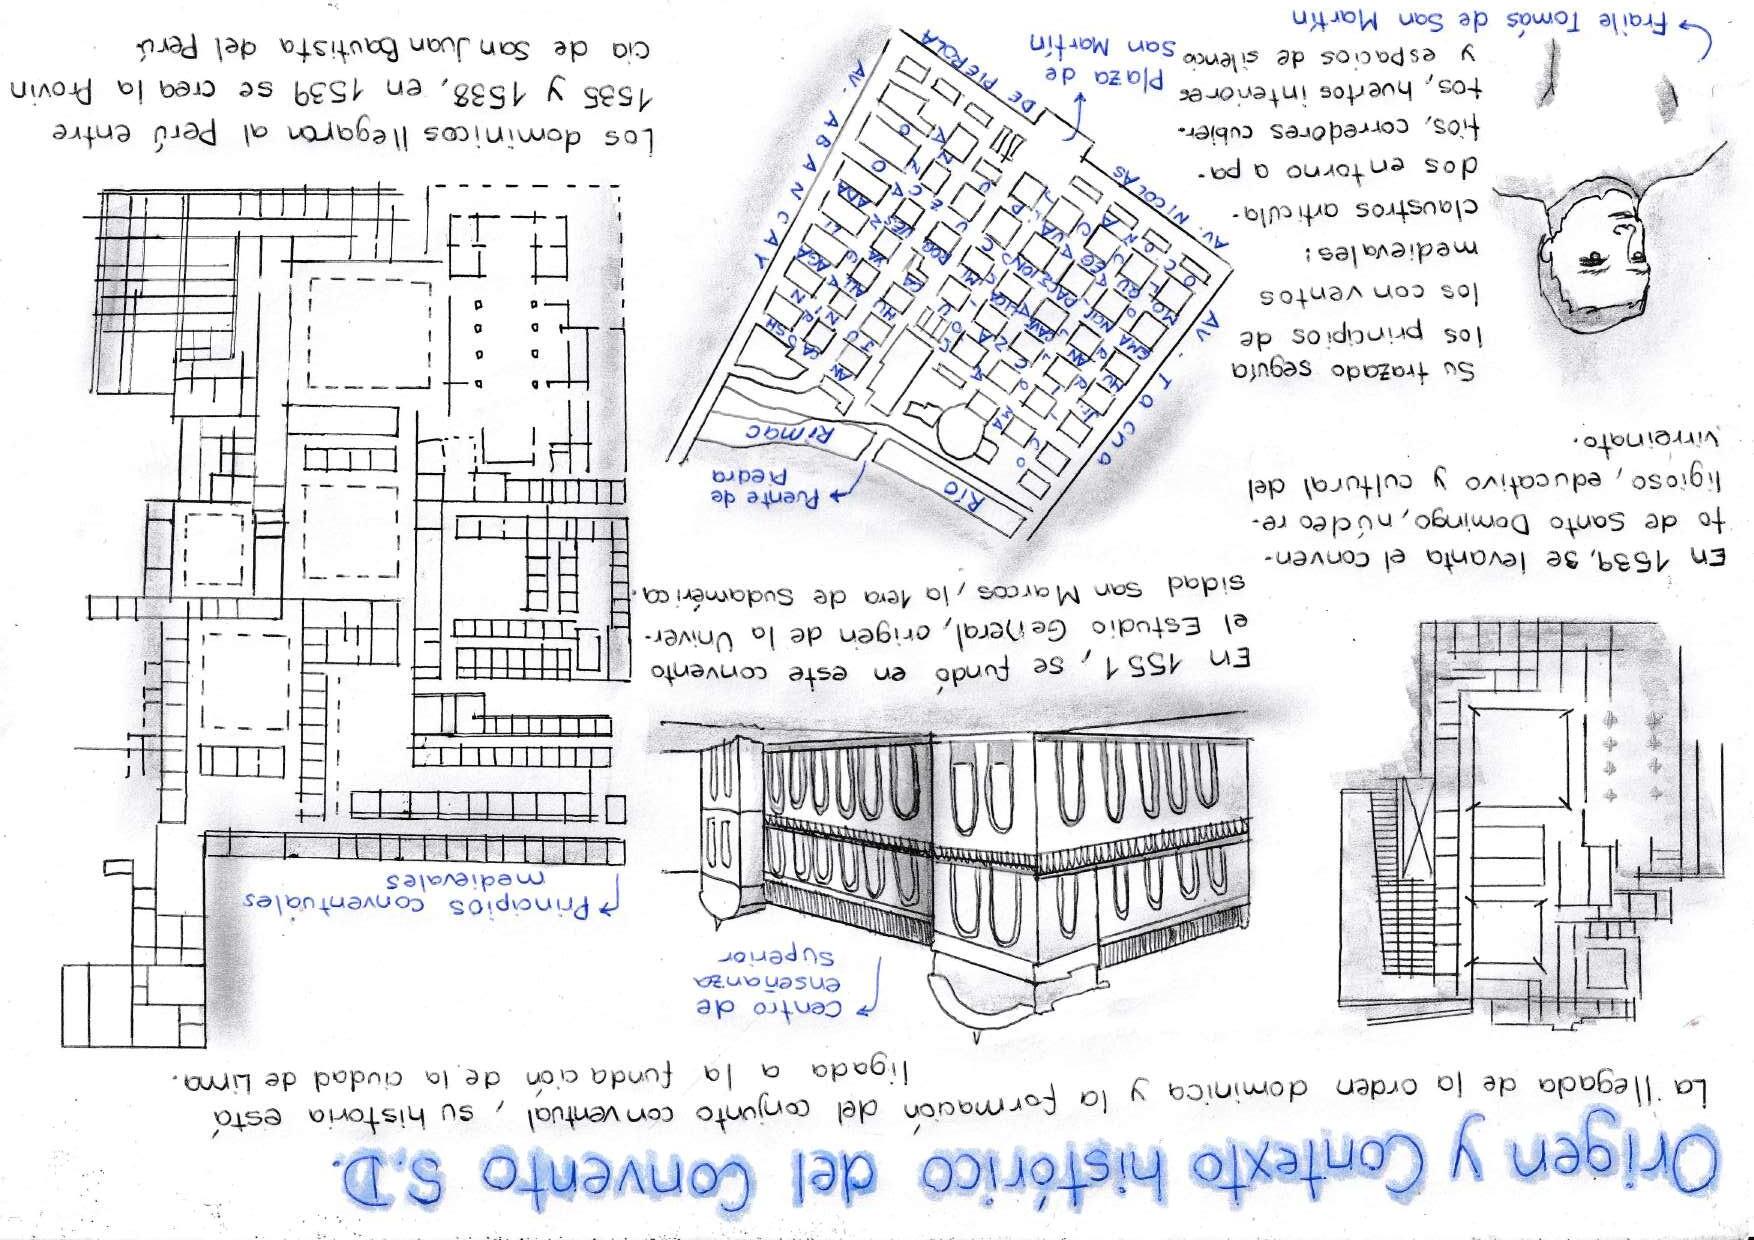 Origen y Contexto histórico del Convento S.D.
La llegada de la orden dominica y la formación del conjunto conventual, su historia está
ligada a la fundación de la ciudad de Lima.
Centro de
enseñanza
superior
Principios conventuales
medievales
En 1551, se fundó en este convento
el Estudio General, origen de la Univer-
sidad San Marcos, la 1era de Sudamérica.
En 1539, se levanta el conven-
to de Santo Domingo, núcleo re-
ligioso, educativo y cultural del
virreinato.
Puente de
Piedra
RIO RIMAC
AV. Tacna
AV. NICOLAS DE PIEROLA
AV. ABANCAY
Plaza de
San Martín
Su trazado seguía
los principios de
los conventos
medievales:
claustros articula-
dos entorno a pa-
tios, corredores cubier-
tos, huertos interiores
y espacios de silencio
Fraile Tomás de San Martín
Los dominicos llegaron al Perú entre
1535 y 1538, en 1539 se crea la Provin
cia de San Juan Bautista del Perú